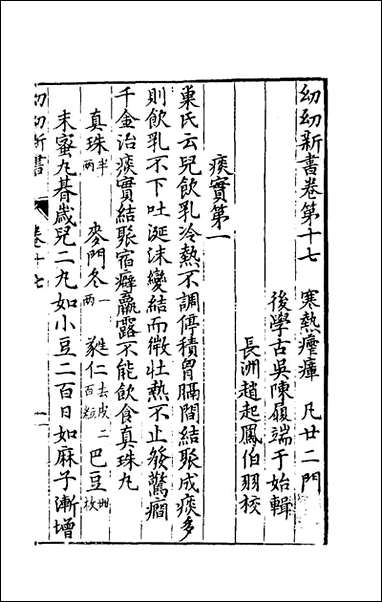 幼幼新書卷第十七　寒熱瘧𤸎　凡廿二門
後學古吳陳履端于始輯
長洲趙起鳳伯羽校
痰實第一
巢氏云兒飲乳冷熱不調停積胷膈間結聚成痰多
則飲乳不下吐涎沫變結而微壯熱不止發驚癇
千金治痰實結聚宿癖羸露不能飲食真珠丸
真珠半兩　麥門冬一兩　蕤仁去皮二百粒　巴豆卌枚
末蜜丸朞歲兒二丸如小豆二百日如麻子漸增
幼幼新書　卷十七